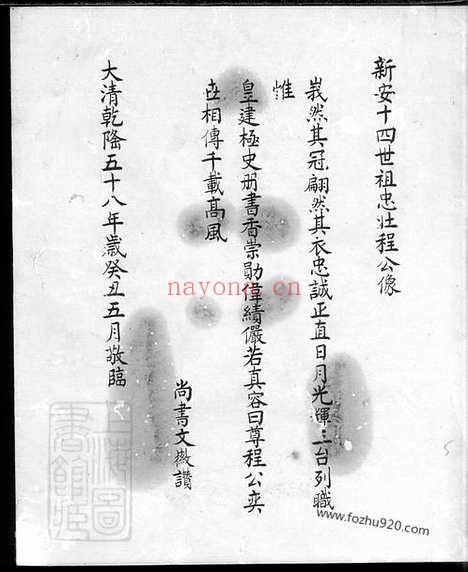 新安十四世祖忠壯程公像
峩然其冠翩然其衣忠誠正直日月光輝三台列職
惟
皇建極史册書香崇勛偉績儼若真容曰尊程公奕
世相傳千載高風
尚書文徵讃
大清乾隆五十八年歲癸丑五月敬臨
nayona.cn
上海圖書館藏
www.fozhu920.com